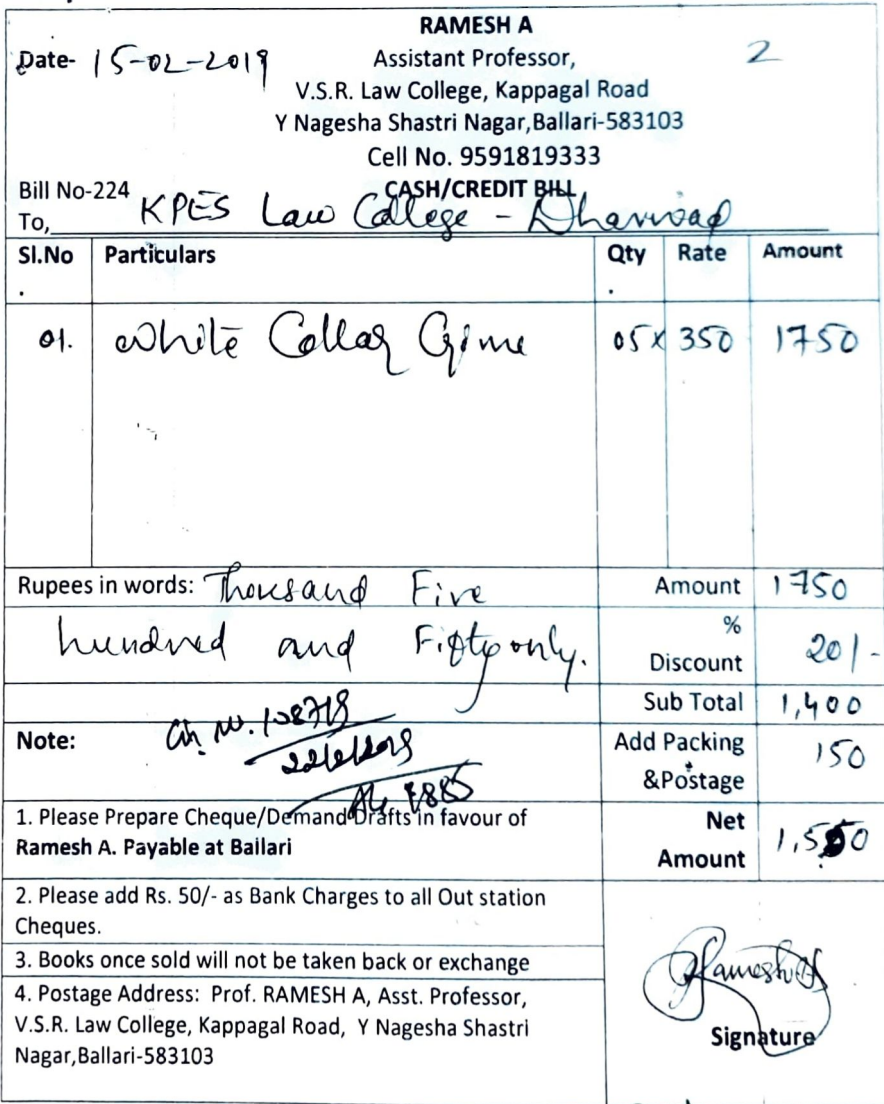 RAMESH A
Date- 15-02-2019 Assistant Professor, 2
V.S.R. Law College, Kappagal Road
Y Nagesha Shastri Nagar,Ballari-583103
Cell No. 9591819333
Bill No-224 CASH/CREDIT BILL
To, KPES Law College - Dharwad
Sl.No. Particulars Qty. Rate Amount
01. White Collar Crime 05 x 350 1750
Rupees in words: Thousand Five Amount 1750
hundred and Fifty only. % Discount 20/-
Sub Total 1,400
Note: Ch. No. 108718 Add Packing
&Postage 150
1. Please Prepare Cheque/Demand Drafts in favour of
Ramesh A. Payable at Bailari
Net
Amount 1,550
2. Please add Rs. 50/- as Bank Charges to all Out station
Cheques.
3. Books once sold will not be taken back or exchange
4. Postage Address: Prof. RAMESH A, Asst. Professor,
V.S.R. Law College, Kappagal Road, Y Nagesha Shastri
Nagar,Ballari-583103
Ramesh A
Signature